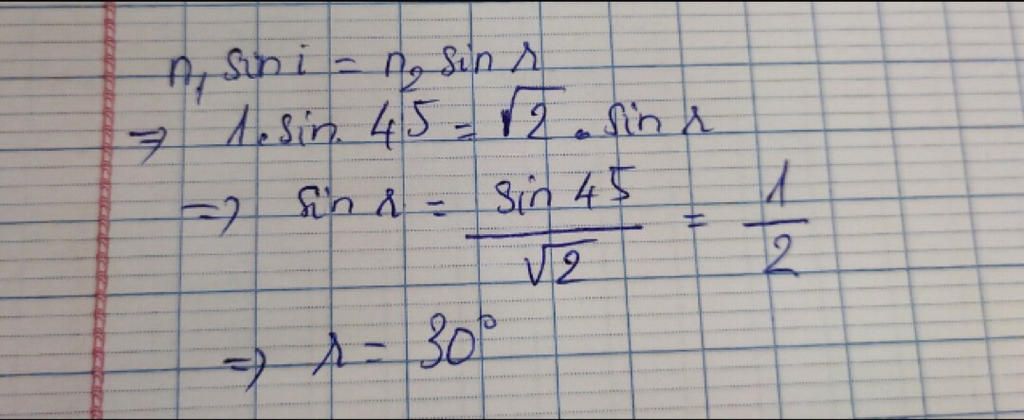 n₁ sin i = n₂ sin r
⇒ 1. sin. 45 = √2 . sin r
⇒ sin r = sin 45 / √2 = 1 / 2
⇒ r = 30°